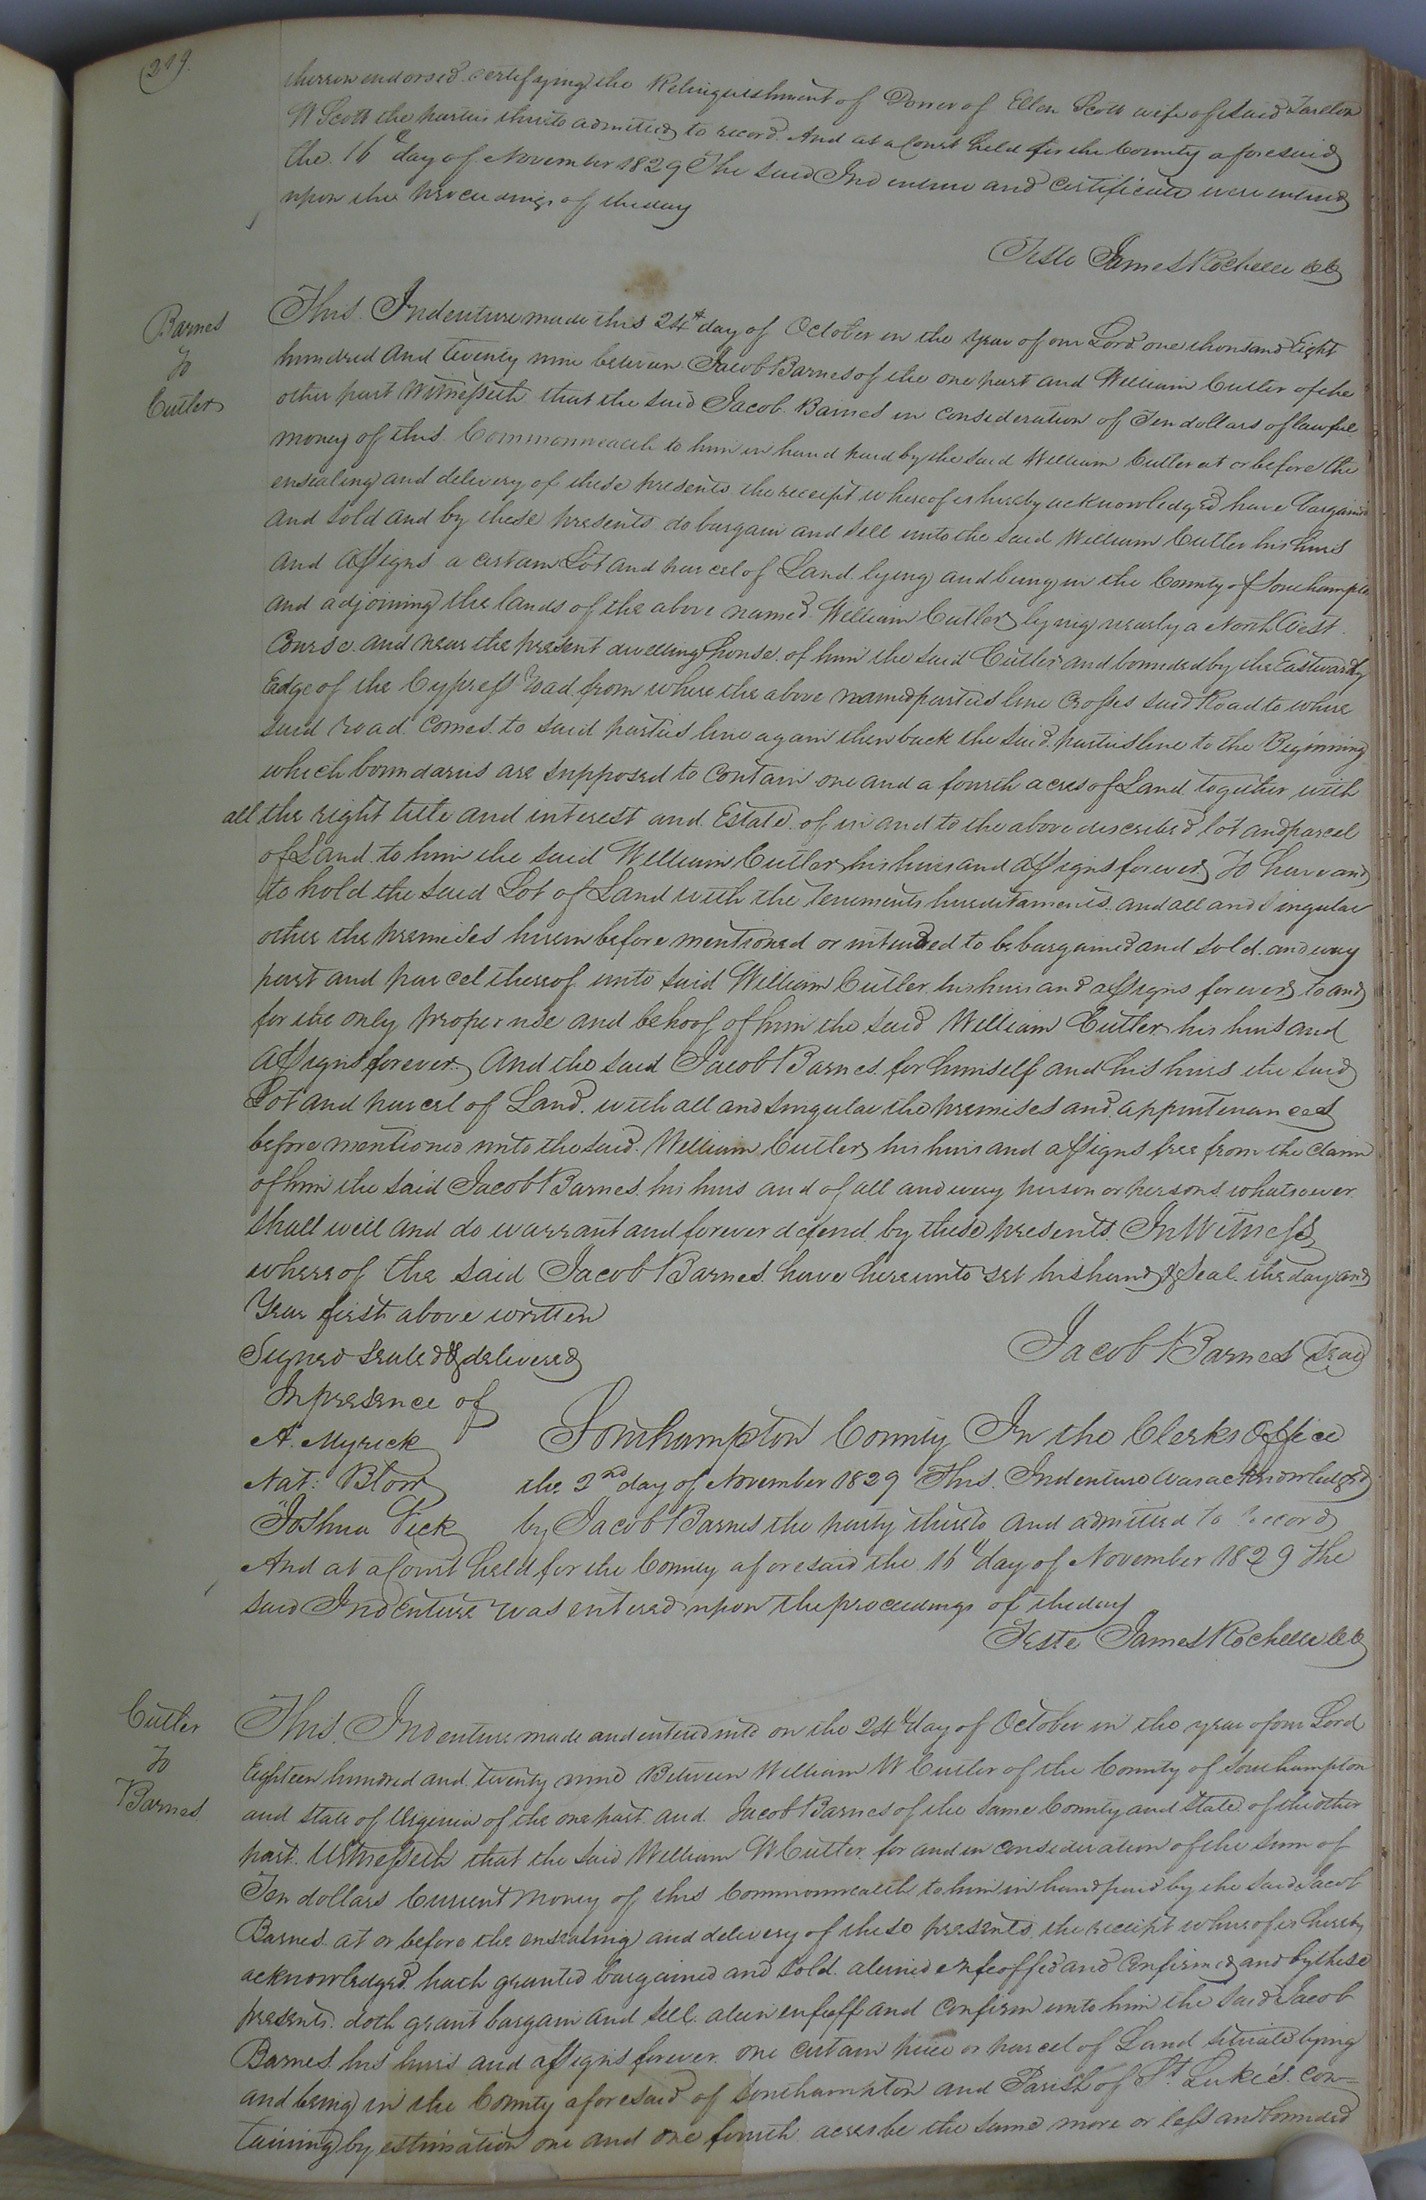 219.
thereon endorsed certifying the Relinquishment of Dower of Ellen Scott wife of said
W Scott the parties thereto admitted to record. And at a Court held for the County aforesaid
the 16th day of November 1829 The said Indenture and Certificate were entered
upon the proceedings of the day
Teste James Rochelle CC
Barnes
To
Cutler
This Indenture made this 24th day of October in the year of our Lord one thousand Eight
hundred and twenty nine between Jacob Barnes of the one part and William Cutler of the
other part Witnesseth that the said Jacob Barnes in consideration of Ten dollars of lawful
money of this Commonwealth to him in hand paid by the said William Cutler at or before the
ensealing and delivery of these presents the receipt whereof is hereby acknowledged have bargained
and sold and by these presents do bargain and sell unto the said William Cutler his heirs
and assigns a certain Lot and parcel of Land lying and being in the County of Southampton
and adjoining the lands of the above named William Cutler lying nearly a North West
Course and near the present dwelling house of him the said Cutler and bounded by the Eastwardly
Edge of the Cypress Road from where the above named parties line crosses said Road to where
said road comes to said parties line again then back the said parties line to the Beginning
which boundaries are supposed to contain one and a fourth acres of Land together with
all the right title and interest and Estate of in and to the above described lot and parcel
of Land to him the said William Cutler his heirs and assigns forever To have and
to hold the said Lot of Land with the Tenements hereditaments and all and singular
other the premises herein before mentioned or intended to be bargained and sold and every
part and parcel thereof unto said William Cutler his heirs and assigns forever to and
for the only proper use and behoof of him the said William Cutler his heirs and
assigns forever And the said Jacob Barnes for himself and his heirs the said
Lot and parcel of Land with all and singular the premises and appurtenances
before mentioned unto the said William Cutler his heirs and assigns free from the claim
of him the said Jacob Barnes his heirs and of all and every person or persons whatsoever
shall will and do warrant and forever defend by these presents In Witness
whereof the said Jacob Barnes have hereunto set his hand & Seal the day and
Year first above written
Signed sealed & delivered
Jacob Barnes Seal
In presence of
A. Myrick
Nat: Blow
Joshua Vick
Southampton County In the Clerks Office
the 2nd day of November 1829 This Indenture was acknowledged
by Jacob Barnes the party thereto and admitted to record
And at a Court held for the County aforesaid the 16th day of November 1829 The
said Indenture was entered upon the proceedings of the day
Teste James Rochelle CC
Cutler
To
Barnes
This Indenture made and entered into on the 24th day of October in the year of our Lord
Eighteen hundred and twenty nine Between William W Cutler of the County of Southampton
and state of Virginia of the one part and Jacob Barnes of the same County and State of the other
part Witnesseth that the said William W Cutler for and in consideration of the sum of
Ten dollars Current money of this Commonwealth to him in hand paid by the said Jacob
Barnes at or before the ensealing and delivery of these presents the receipt whereof is hereby
acknowledged hath granted bargained and sold aliened enfeoffed and Confirmed and by these
presents doth grant bargain and sell alien enfeoff and confirm unto him the said Jacob
Barnes his heirs and assigns forever one certain piece or parcel of Land situate lying
and being in the County aforesaid of Southampton and Parish of St. Luke's con=
taining by estimation one and one fourth acres be the same more or less and bounded